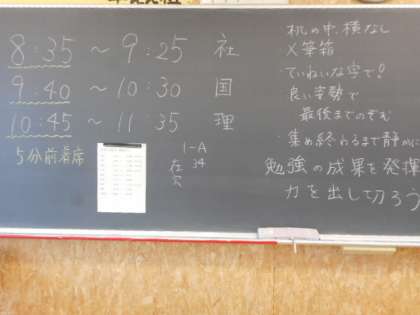 8:35 ～ 9:25 社
9:40 ～ 10:30 国
10:45 ～ 11:35 理
5分前着席
1-A
在 34
欠
机の中、横なし
×筆箱
・ていねいな字で!
・良い姿勢で
最後までのぞむ
・集め終わるまで静かに
勉強の成果を発揮
力を出し切ろう